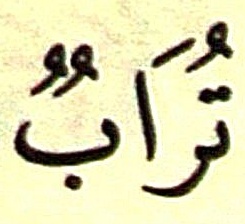 تُرَابٌ